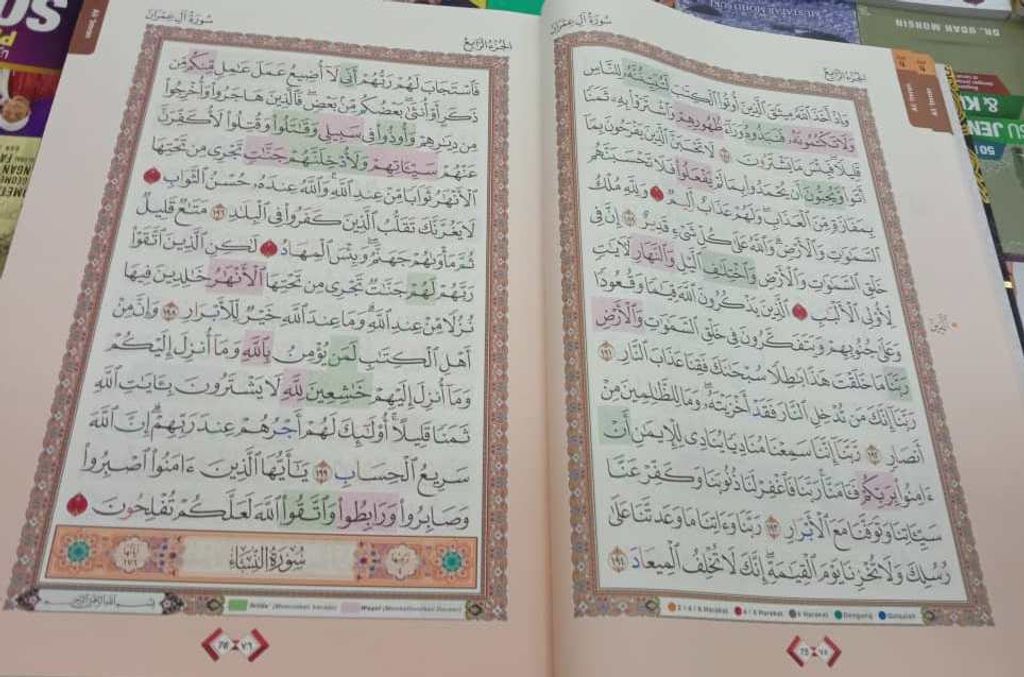 سُورَةُ آلِ عِمْرَان
الجُزءُ الرَّابِعُ
وَإِذْ أَخَذَ ٱللَّهُ مِيثَٰقَ ٱلَّذِينَ أُوتُوا۟ ٱلْكِتَٰبَ لَتُبَيِّنُنَّهُۥ لِلنَّاسِ
وَلَا تَكْتُمُونَهُۥ فَنَبَذُوهُ وَرَآءَ ظُهُورِهِمْ وَٱشْتَرَوْا۟ بِهِۦ ثَمَنًا
قَلِيلًا فَبِئْسَ مَا يَشْتَرُونَ ١٨٧ لَا تَحْسَبَنَّ ٱلَّذِينَ يَفْرَحُونَ بِمَآ
أَتَوا۟ وَّيُحِبُّونَ أَن يُحْمَدُوا۟ بِمَا لَمْ يَفْعَلُوا۟ فَلَا تَحْسَبَنَّهُم
بِمَفَازَةٍ مِّنَ ٱلْعَذَابِ وَلَهُمْ عَذَابٌ أَلِيمٌ ١٨٨ وَلِلَّهِ مُلْكُ
ٱلسَّمَٰوَٰتِ وَٱلْأَرْضِ وَٱللَّهُ عَلَىٰ كُلِّ شَىْءٍ قَدِيرٌ ١٨٩ إِنَّ فِى
خَلْقِ ٱلسَّمَٰوَٰتِ وَٱلْأَرْضِ وَٱخْتِلَٰفِ ٱلَّيْلِ وَٱلنَّهَارِ لَءَايَٰتٍ
لِّأُو۟لِى ٱلْأَلْبَٰبِ ١٩٠ ٱلَّذِينَ يَذْكُرُونَ ٱللَّهَ قِيَٰمًا وَقُعُودًا
وَعَلَىٰ جُنُوبِهِمْ وَيَتَفَكَّرُونَ فِى خَلْقِ ٱلسَّمَٰوَٰتِ وَٱلْأَرْضِ
رَبَّنَا مَا خَلَقْتَ هَٰذَا بَٰطِلًا سُبْحَٰنَكَ فَقِنَا عَذَابَ ٱلنَّارِ ١٩١
رَبَّنَآ إِنَّكَ مَن تُدْخِلِ ٱلنَّارَ فَقَدْ أَخْزَيْتَهُۥ وَمَا لِلظَّٰلِمِينَ مِنْ
أَنصَارٍ ١٩٢ رَّبَّنَآ إِنَّنَا سَمِعْنَا مُنَادِيًا يُنَادِى لِلْإِيمَٰنِ أَنْ
ءَامِنُوا۟ بِرَبِّكُمْ فَـَٔامَنَّا رَبَّنَا فَٱغْفِرْ لَنَا ذُنُوبَنَا وَكَفِّرْ عَنَّا
سَيِّـَٔاتِنَا وَتَوَفَّنَا مَعَ ٱلْأَبْرَارِ ١٩٣ رَبَّنَا وَءَاتِنَا مَا وَعَدتَّنَا عَلَىٰ
رُسُلِكَ وَلَا تُخْزِنَا يَوْمَ ٱلْقِيَٰمَةِ إِنَّكَ لَا تُخْلِفُ ٱلْمِيعَادَ ١٩٤
2 / 4 / 6 Harakat 4 / 5 Harakat 6 Harakat Dengung Qalqalah
75 ٧٥
سُورَةُ آلِ عِمْرَان
الجُزءُ الرَّابِعُ
فَٱسْتَجَابَ لَهُمْ رَبُّهُمْ أَنِّى لَآ أُضِيعُ عَمَلَ عَٰمِلٍ مِّنكُم مِّن
ذَكَرٍ أَوْ أُنثَىٰ بَعْضُكُم مِّنۢ بَعْضٍ فَٱلَّذِينَ هَاجَرُوا۟ وَأُخْرِجُوا۟
مِن دِيَٰرِهِمْ وَأُوذُوا۟ فِى سَبِيلِى وَقَٰتَلُوا۟ وَقُتِلُوا۟ لَأُكَفِّرَنَّ
عَنْهُمْ سَيِّـَٔاتِهِمْ وَلَأُدْخِلَنَّهُمْ جَنَّٰتٍ تَجْرِى مِن تَحْتِهَا
ٱلْأَنْهَٰرُ ثَوَابًا مِّنْ عِندِ ٱللَّهِ وَٱللَّهُ عِندَهُۥ حُسْنُ ٱلثَّوَابِ ١٩٥
لَا يَغُرَّنَّكَ تَقَلُّبُ ٱلَّذِينَ كَفَرُوا۟ فِى ٱلْبِلَٰدِ ١٩٦ مَتَٰعٌ قَلِيلٌ
ثُمَّ مَأْوَىٰهُمْ جَهَنَّمُ وَبِئْسَ ٱلْمِهَادُ ١٩٧ لَٰكِنِ ٱلَّذِينَ ٱتَّقَوْا۟
رَبَّهُمْ لَهُمْ جَنَّٰتٌ تَجْرِى مِن تَحْتِهَا ٱلْأَنْهَٰرُ خَٰلِدِينَ فِيهَا
نُزُلًا مِّنْ عِندِ ٱللَّهِ وَمَا عِندَ ٱللَّهِ خَيْرٌ لِّلْأَبْرَارِ ١٩٨ وَإِنَّ مِنْ
أَهْلِ ٱلْكِتَٰبِ لَمَن يُؤْمِنُ بِٱللَّهِ وَمَآ أُنزِلَ إِلَيْكُمْ
وَمَآ أُنزِلَ إِلَيْهِمْ خَٰشِعِينَ لِلَّهِ لَا يَشْتَرُونَ بِـَٔايَٰتِ ٱللَّهِ
ثَمَنًا قَلِيلًا أُو۟لَٰٓئِكَ لَهُمْ أَجْرُهُمْ عِندَ رَبِّهِمْ إِنَّ ٱللَّهَ
سَرِيعُ ٱلْحِسَابِ ١٩٩ يَٰٓأَيُّهَا ٱلَّذِينَ ءَامَنُوا۟ ٱصْبِرُوا۟
وَصَابِرُوا۟ وَرَابِطُوا۟ وَٱتَّقُوا۟ ٱللَّهَ لَعَلَّكُمْ تُفْلِحُونَ ٢٠٠
سُورَةُ النِّسَاءِ
76 ٧٦
DR. UDAH MOHSIN